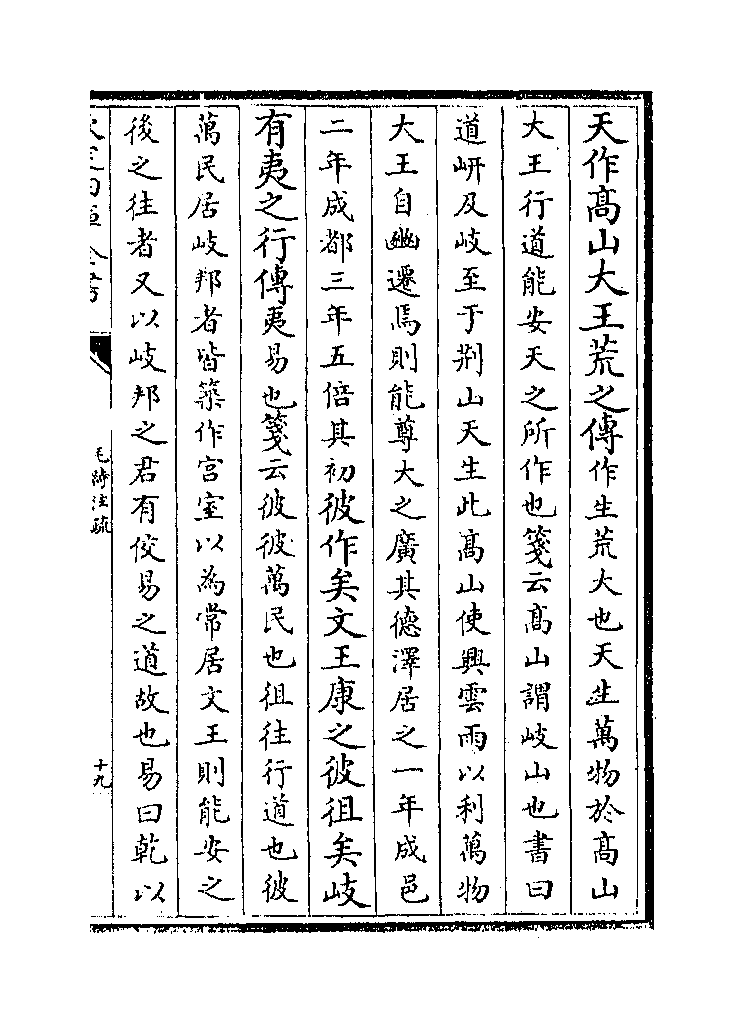 天作髙山大王荒之傳作生荒大也天生萬物於髙山
大王行道能安天之所作也箋云髙山謂岐山也書曰
道岍及岐至于荆山天生此髙山使興雲雨以利萬物
大王自豳遷焉則能尊大之廣其德澤居之一年成邑
二年成都三年五倍其初彼作矣文王康之彼徂矣岐
有夷之行傳夷易也箋云彼彼萬民也徂往行道也彼
萬民居岐邦者皆築作宫室以為常居文王則能安之
後之往者又以岐邦之君有佼易之道故也易曰乾以
毛詩注疏
十九